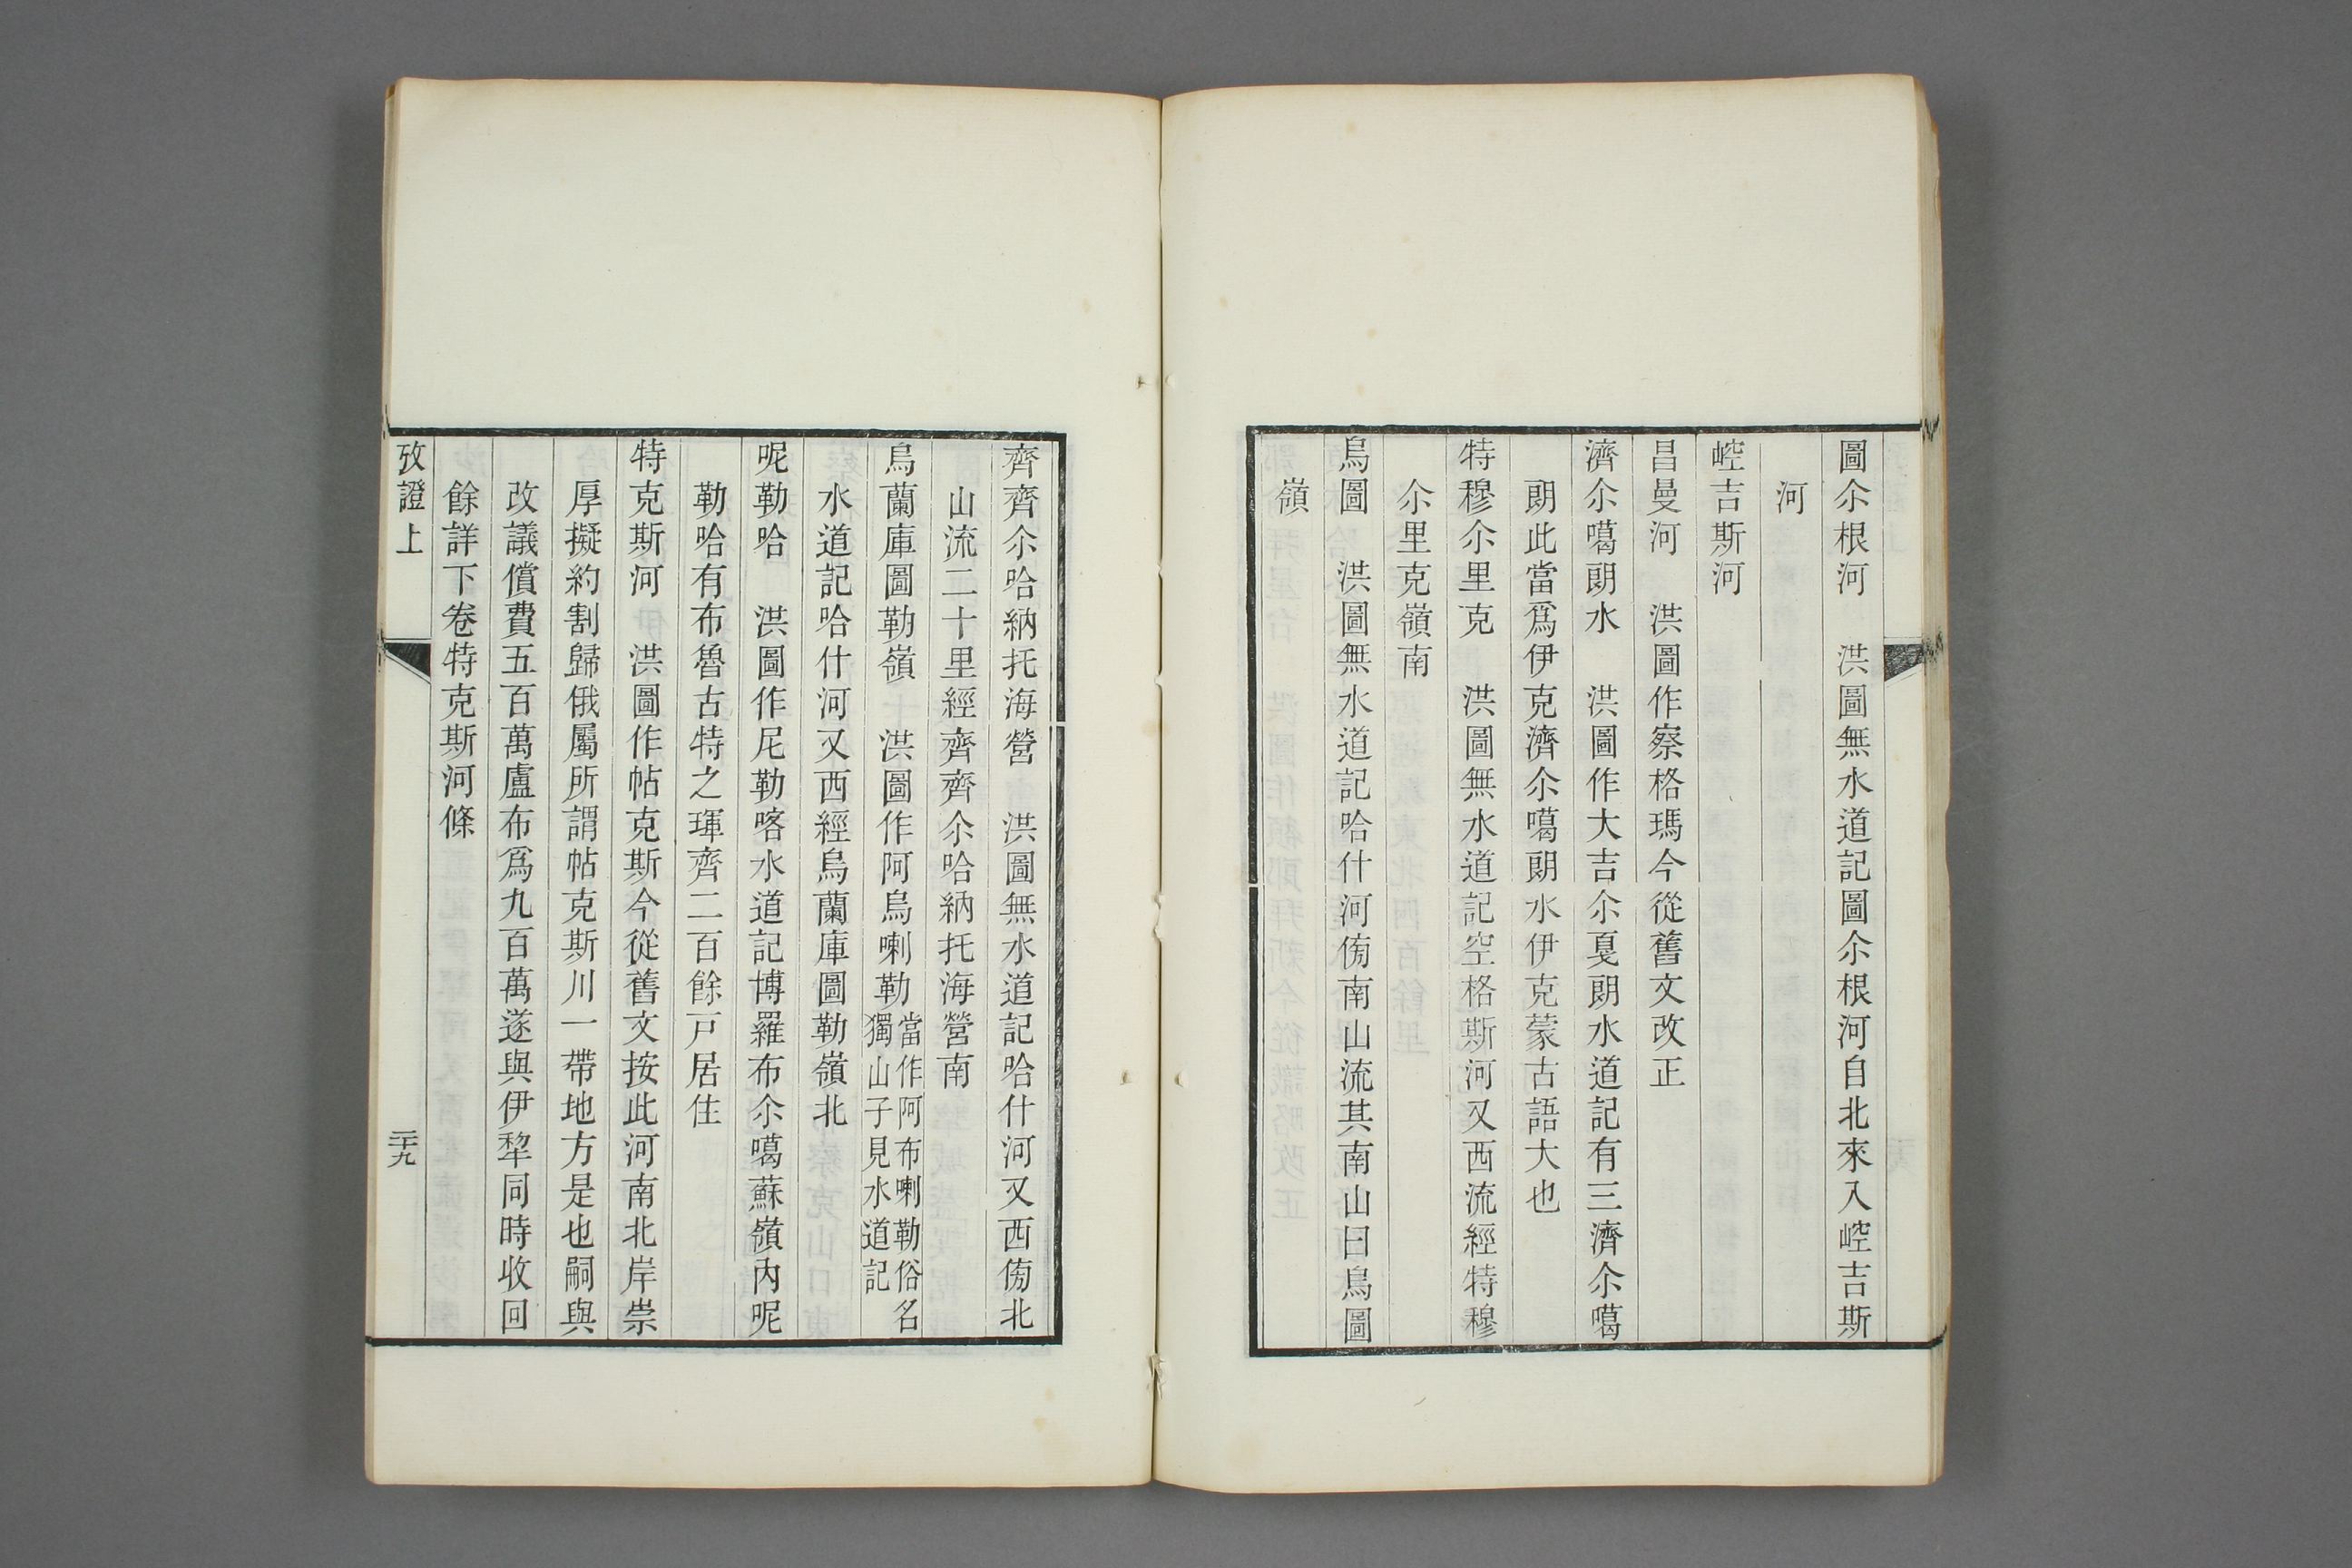 圖尒根河　洪圖無水道記圖尒根河自北來入崆吉斯
河
崆吉斯河
昌曼河　洪圖作察格瑪今從舊文改正
濟尒噶朗水　洪圖作大吉尒戛朗水道記有三濟尒噶
朗此當爲伊克濟尒噶朗水伊克蒙古語大也
特穆尒里克　洪圖無水道記空格斯河又西流經特穆
尒里克嶺南
烏圖　洪圖無水道記哈什河傍南山流其南山曰烏圖
嶺
齊齊尒哈納托海營　洪圖無水道記哈什河又西傍北
山流二十里經齊齊尒哈納托海營南
烏蘭庫圖勒嶺　洪圖作阿烏喇勒當作阿布喇勒俗名獨山子見水道記
水道記哈什河又西經烏蘭庫圖勒嶺北
呢勒哈　洪圖作尼勒喀水道記博羅布尒噶蘇嶺內呢
勒哈有布魯古特之琿齊二百餘戸居住
特克斯河　洪圖作帖克斯今從舊文按此河南北岸崇
厚擬約割歸俄屬所謂帖克斯川一帶地方是也嗣與
改議償費五百萬盧布爲九百萬遂與伊犂同時收回
餘詳下卷特克斯河條
攷證上
二十九